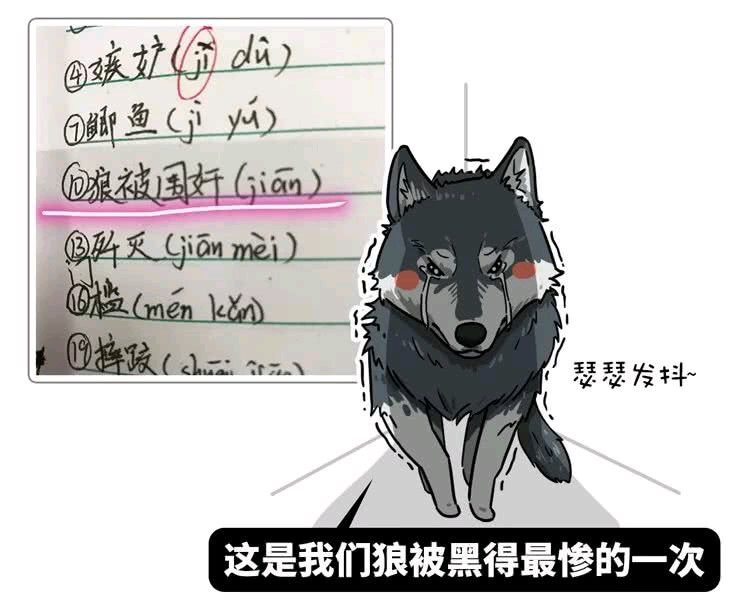 ④嫉妒(jǐ dù)
⑦鲫鱼(jì yú)
⑩狼被围奸(jiān)
⑬歼灭(jiān mèi)
⑯槛(mén kǎn)
⑲摔跤(
瑟瑟发抖~
这是我们狼被黑得最惨的一次